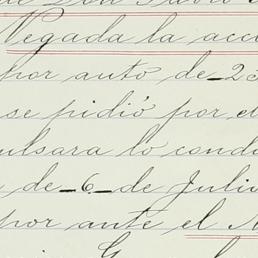 de Don Pablo
Negada la acc
por auto de 23
se pidió por e
pulsara lo cond
de 6 de Julio
por ante el